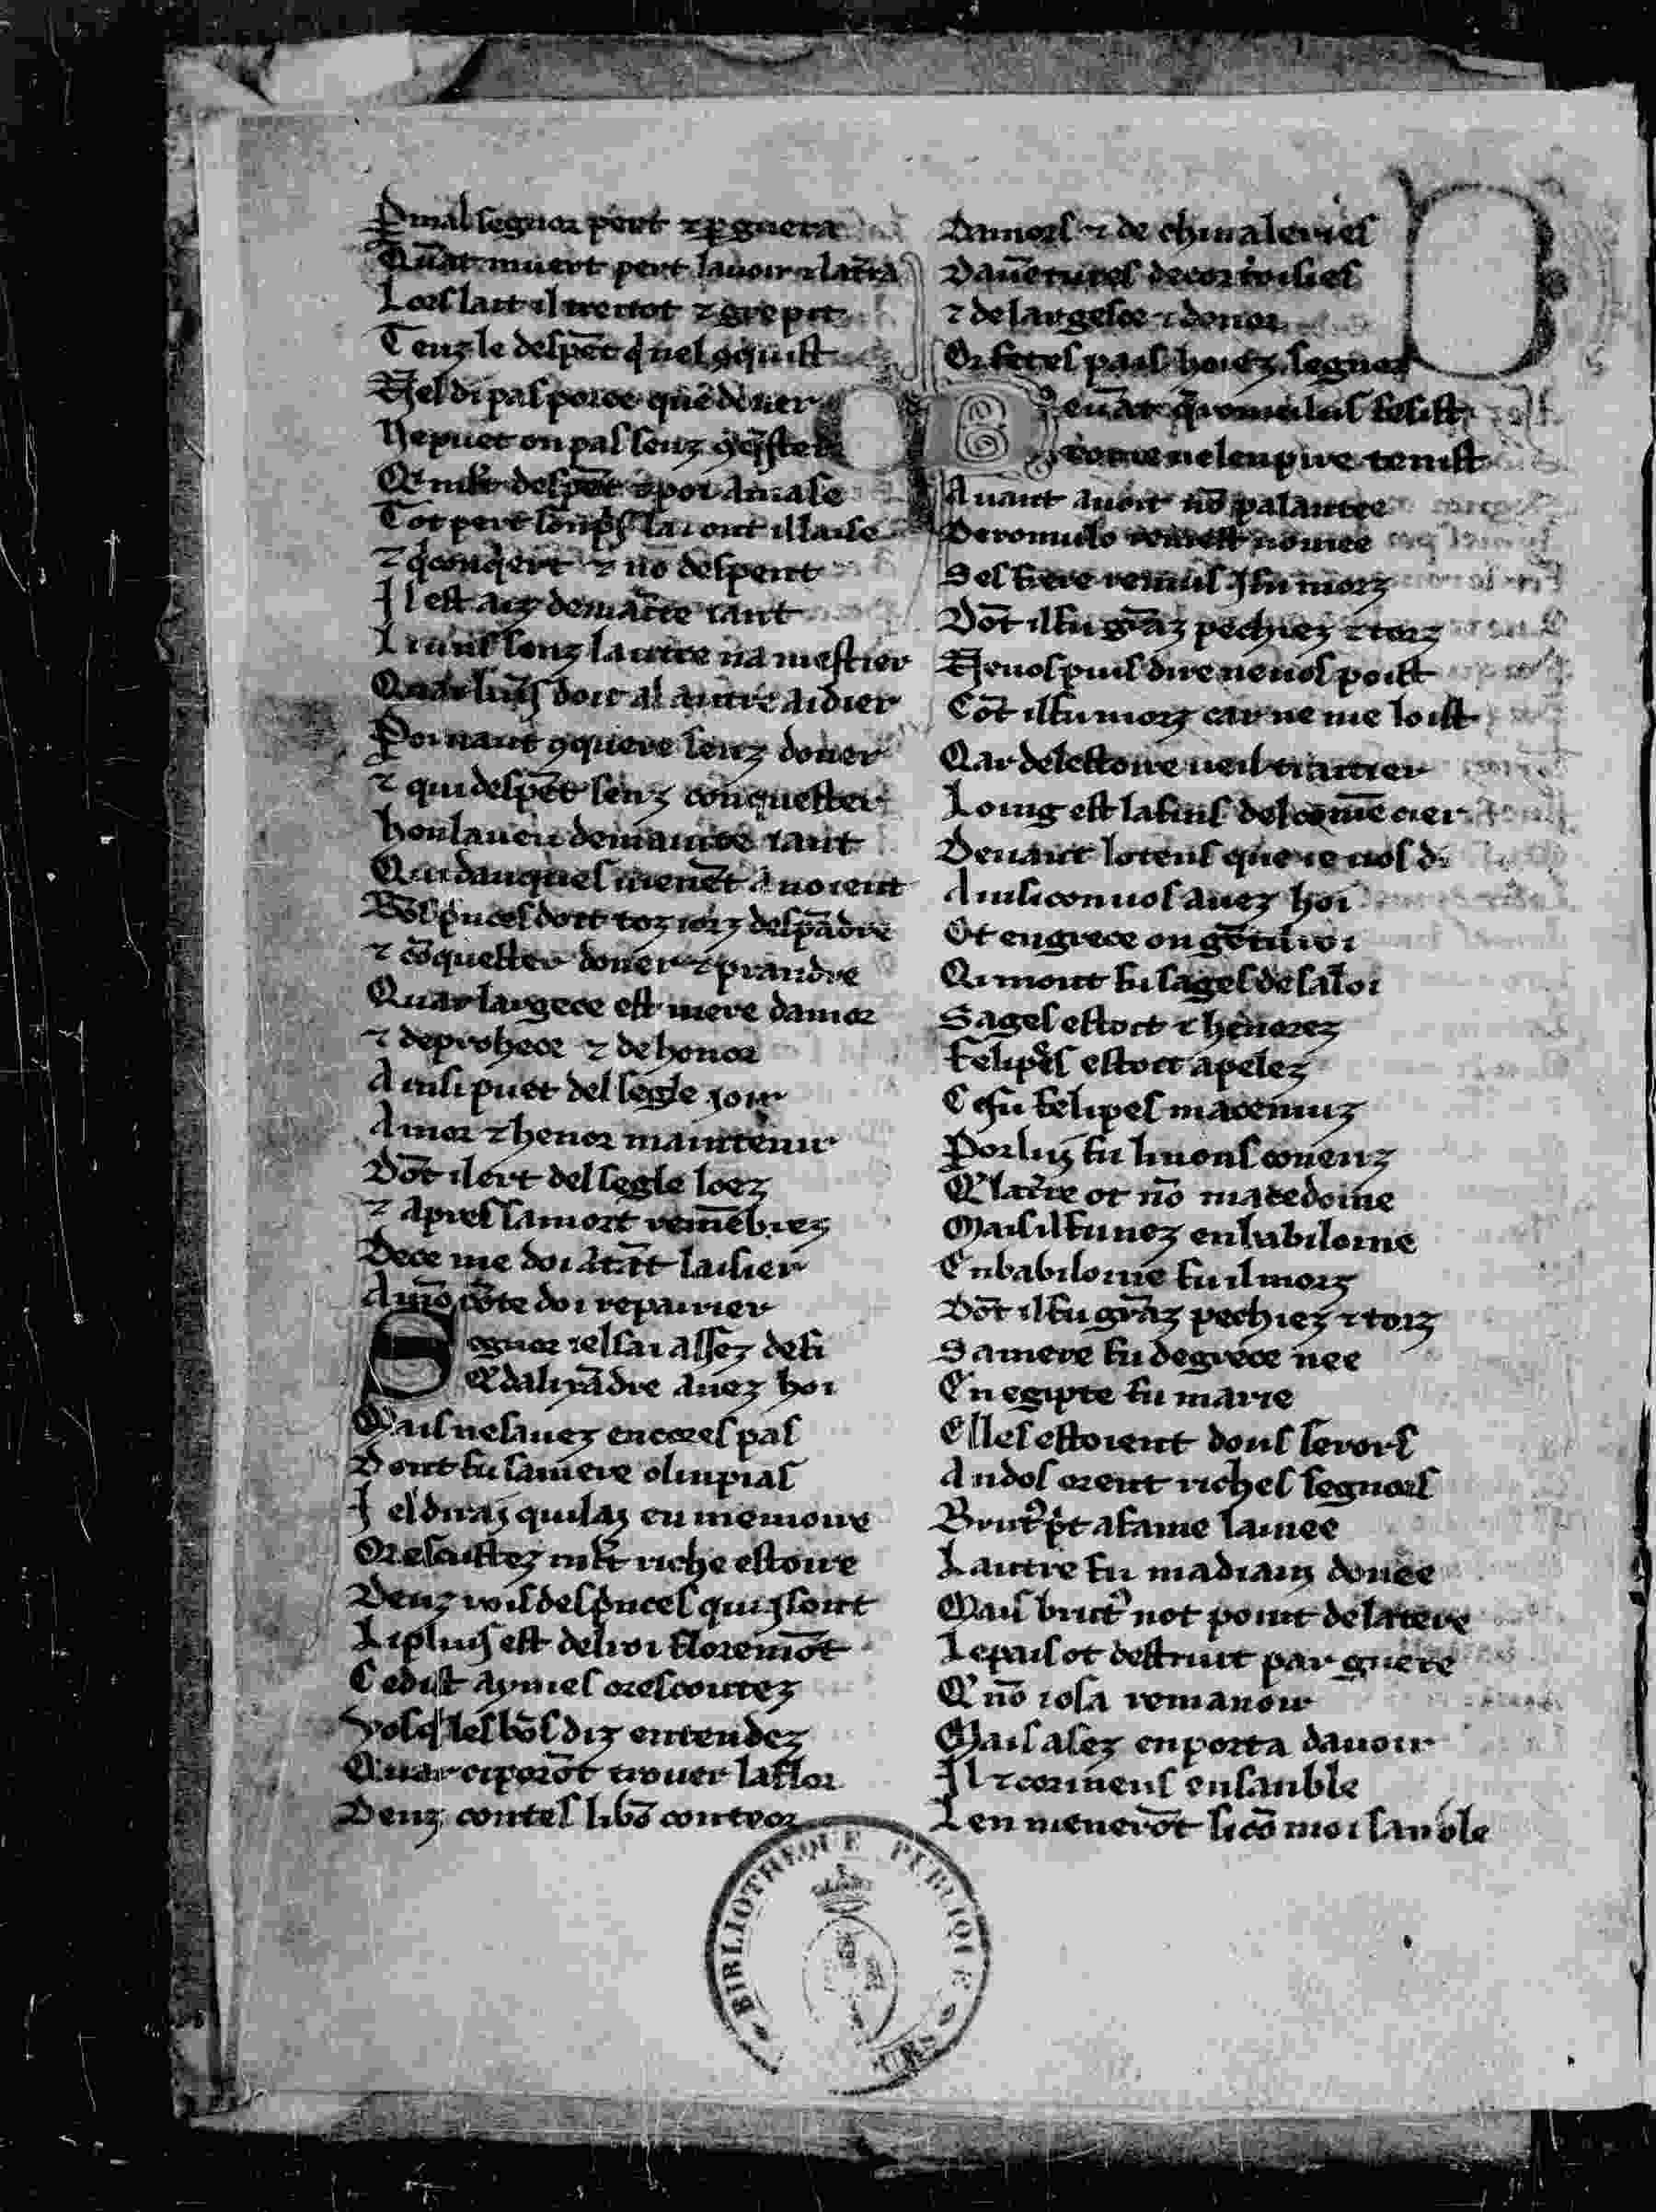 P mal segnor pert ⁊ ꝑ guera
Quāt muert pert lauoir ⁊ la t̄ra
Lors lait il trertot ⁊ grepit
Tenz le despēt q̇ nel ꝯquist
Nel di pas porce quē doner
Ne puet on pas senz ꝯq̄ster
Qi mlt despēt ⁊ poi amase
Tot pert
⁊ q̇ conqert ⁊ nō despent
Il est auz demācte tant
Li uns senz lautre na mestier
Quar luns doit al autre aidier
Poi uaut ꝯquere senz doner
⁊ qui despēt senz conquester
hon lauen demance tant
Qui dauques uienēt a noient
Bōs pnces doit toz iorz despādre
⁊ cōquester doner ⁊ prandre
Quar largece est mere damor
⁊ de prohece ⁊ de honor
Ainsi puet del segle ioir
Amor ⁊ henor maintenir
Dōt il ert del segle loez
⁊ apres la mort remēbrez
De ce me doi atāt laisier
A mō cōte doi repairier
Segnor ie lsai assez de fi
Qᵉ dalixādre auez hoi
Mais ne sauez encores pas
Dont fu sa mere olinpias
Iel dirai qui lai en memoire
Or escuttez mlt riche estoire
Deuz rois des pnces qui i sont
Li plus est del roi floremōt
Ce dist aymes or escoutez
Vos q̇ les bōs diz entendez
Quar ci porōt trouer la flor
Deuz contes li bō conteor
Damors ⁊ de chiualeries
Dauētures de cortoisies
⁊ de largesce ⁊ donor
Or fetes pais hoiez segnor
Deuāt q̇ romulus fesist
Rome ne lenpire tenist
Auant auoit nō palantee
De romulo rome est nomee
Ses frere remus i fu morz
Dōt il fu grāz pechiez ⁊ torz
Ne uos puis dire ne uos poist
Cōt il fu morz car ne me loist
Qar de lestoire ueil traitier
Loing est la fins del comēcier
Deuant lo tens que ie uos di
Ainsi con uos auez hoi
Ot en grece on gētil roi
Qi mont fu sages de sa loi
Sages estoit ⁊ henorez
Felipes estoit apelez
Ce fu felipes macemuz
Por lui fu li nons couenz
Qᵉ la t̄re ot nō macedoine
Mais il fu nez en babiloine
En babiloine fu il morz
Dōt il fu grāz pechiez ⁊ torz
Sa mere fu de grece nee
En egipte fu marie
Elles estoient dous serors
Andos orent riches segnors
Brutꝰ pⁱt a fame lainee
Lautre fu madiain donee
Mais brutꝰ not point de la tere
Le pais ot destruit par guere
Qᵉ nō iosa remanoir
Mais asez enporta dauoir
Il ⁊ corineus ensanble
Len menerōt si cō moi sanble
BIBLIOTHEQUE PUBLIQUE
TOURS